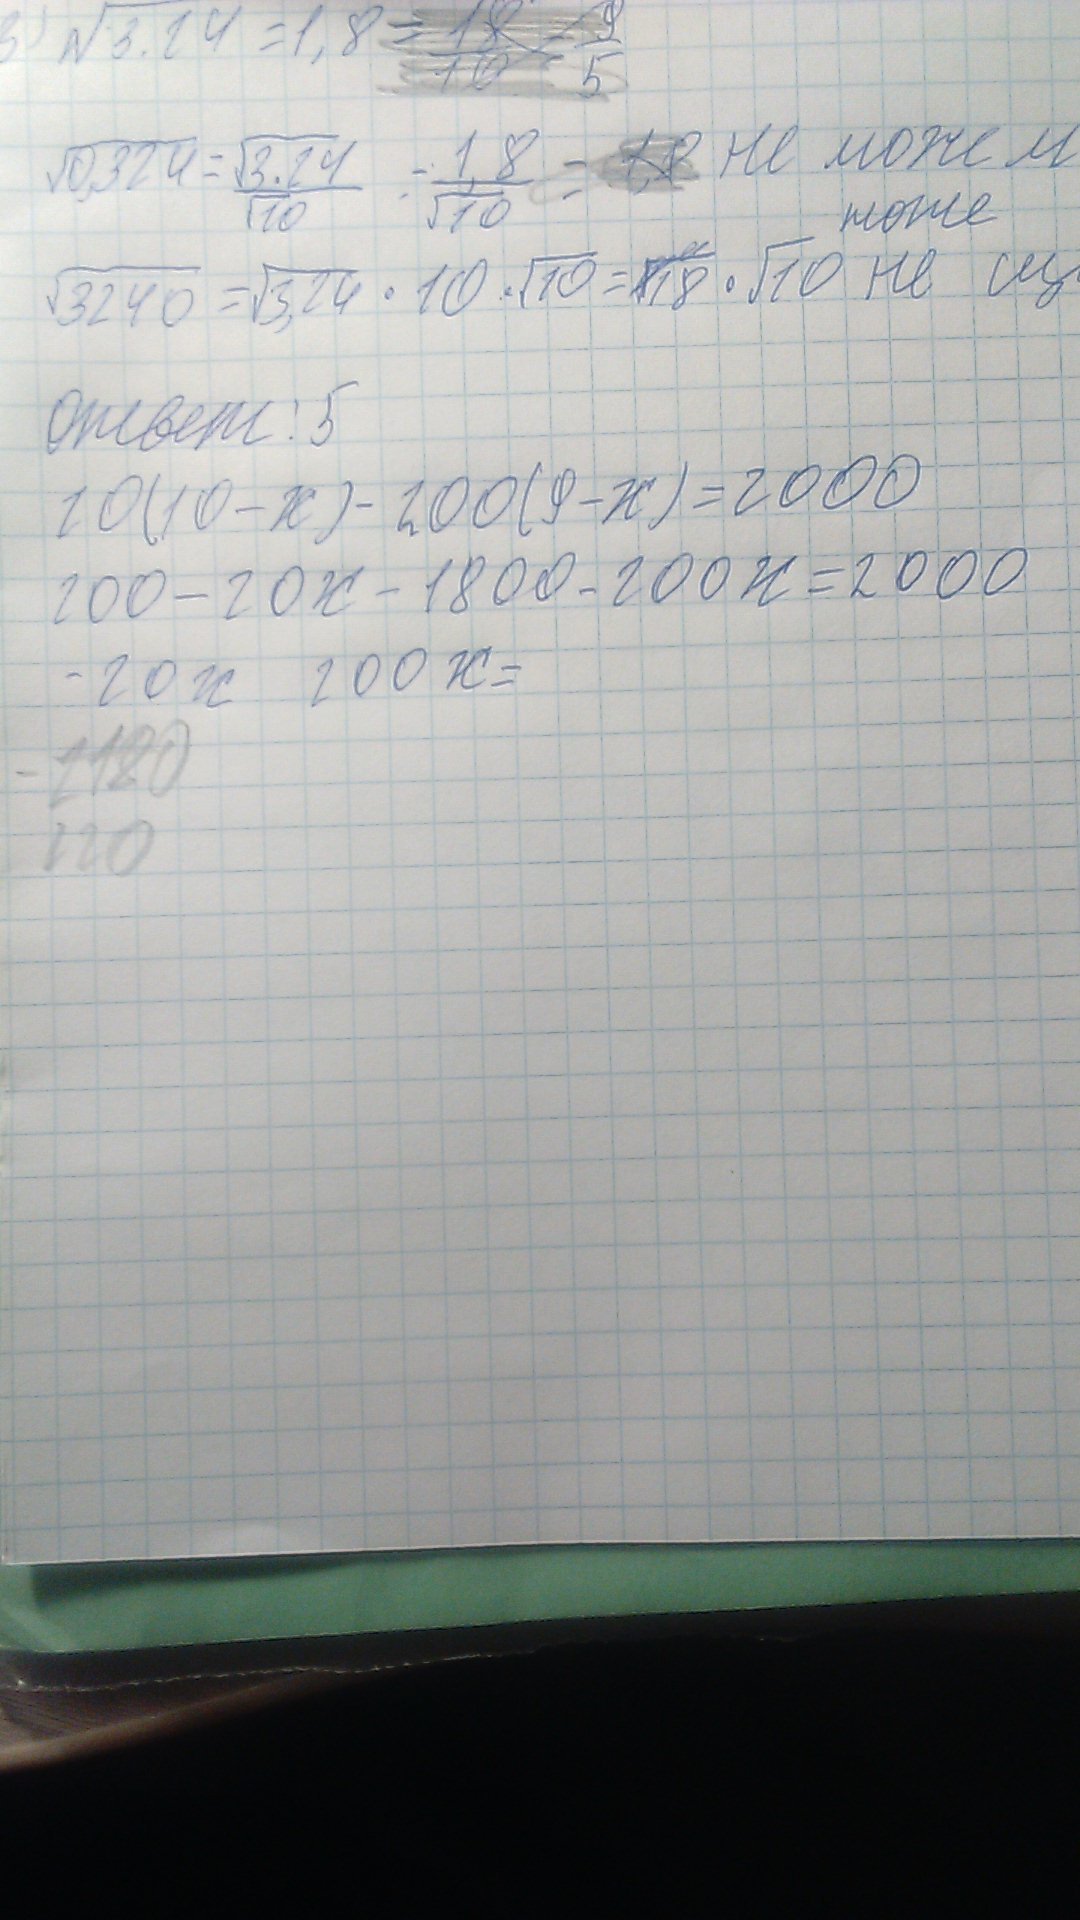 √3.24 = 1,8 = 18/10 = 9/5
√0,324 = √3.24/√10 = 1,8/√10 = не можем
може
√3240 = √3,24 · 10 · √10 = 18 · √10 не
Ответ: 5
20(10-х)-200(9-х)=2000
200-20х-1800-200х=2000
-20х 200х=
-2180
220